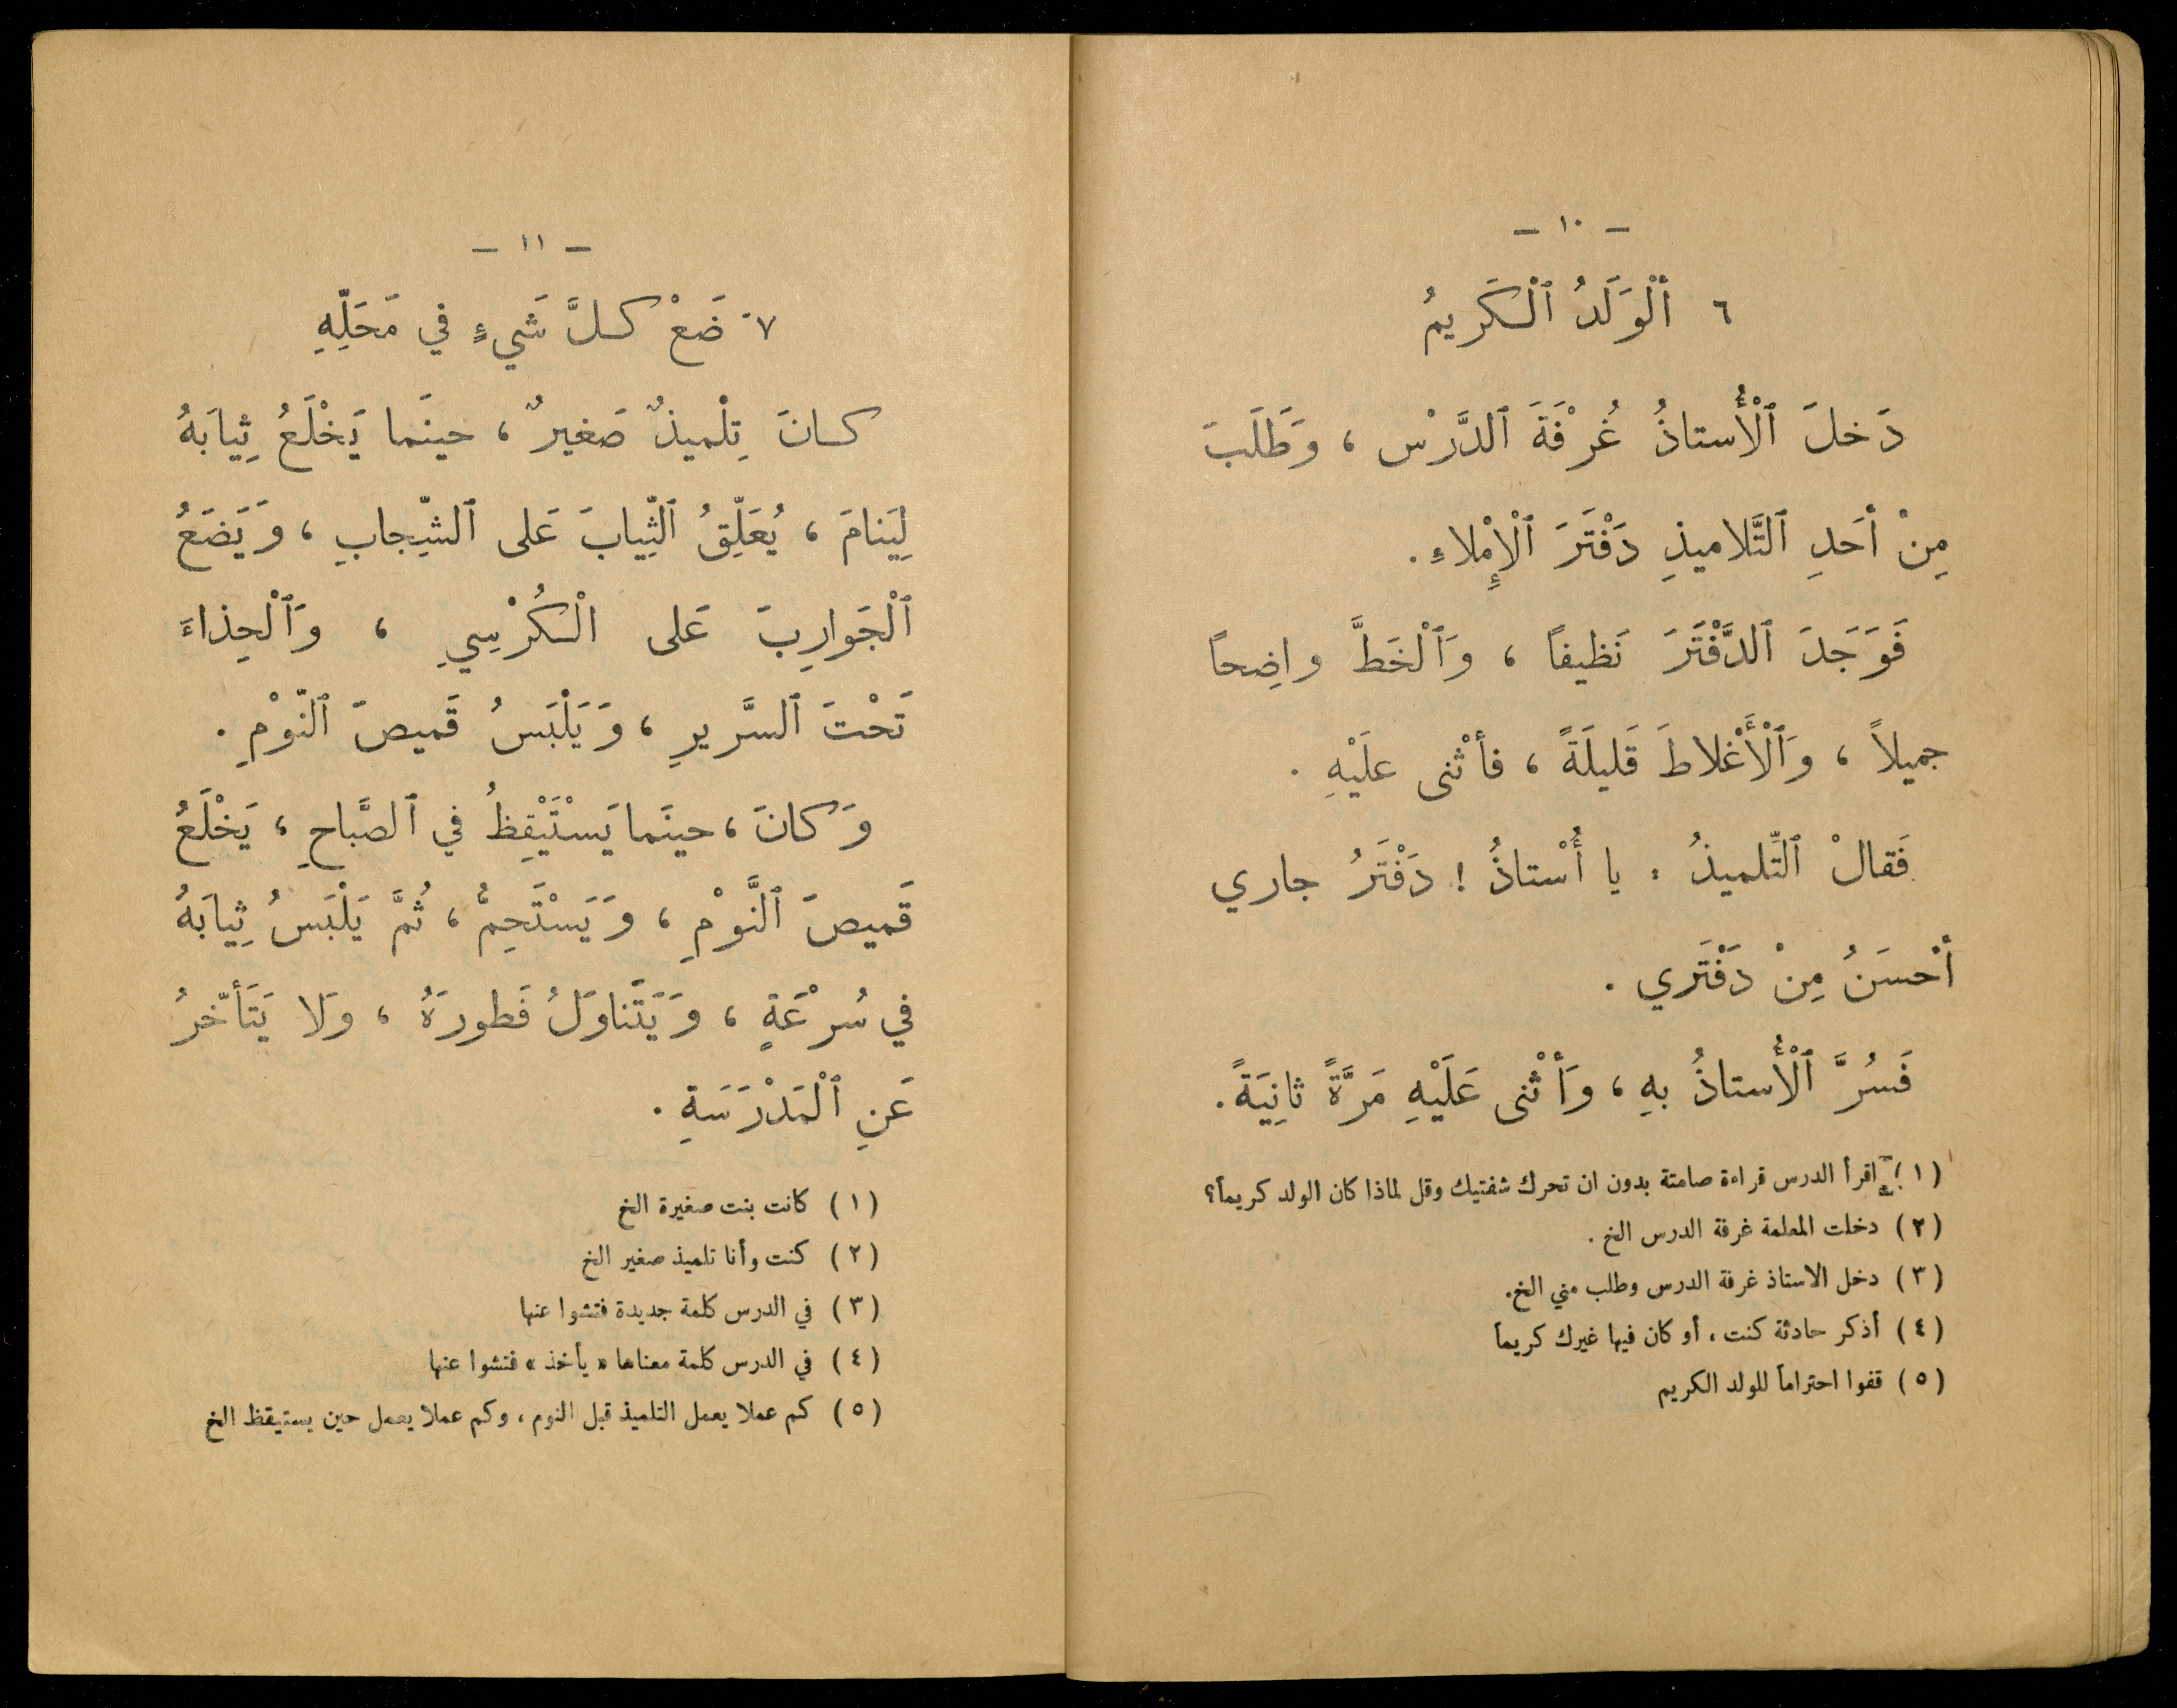 — ١٠ —
٦ أَلْوَلَدُ ٱلْكَريمُ
دَخلَ ٱلْأُستاذُ غُرْفَةَ ٱلدَّرْس ، وَطَلَبَ
مِنْ أحَدِ ٱلتَّلاميذِ دَفْتَرَ ٱلْإِمْلاءِ .
فَوَجَدَ ٱلدَّفْتَرَ نَظيفاً ، وَٱلْخَطَّ واضِحاً
جميلاً ، وَٱلْأَغْلاطَ قَليلَةً ، فأثْنى علَيْهِ .
فَقالْ ٱلتِّلميذُ : يا أُسْتاذُ ! دَفْتَرُ جاري
أحْسَنُ مِنْ دَفْتَري .
فَسُرَّ ٱلْأُستاذُ بهِ ، وَأثْنى عَلَيْهِ مَرَّةً ثانِيَةً .
(١) اقرأ الدرس قراءة صامتة بدون ان تحرك شفتيك وقل لماذا كان الولد كريماً؟
(٢) دخلت المعلمة غرفة الدرس الخ .
(٣) دخل الاستاذ غرفة الدرس وطلب مني الخ.
(٤) أذكر حادثة كنت ، أو كان فيها غيرك كريماً
(٥) قفوا احتراماً للولد الكريم
— ١١ —
٧ . ضَعْ كلَّ شَيءٍ في مَحَلِّهِ
كانَ تِلْميذٌ صَغيرٌ ، حينَما يَخْلَعُ ثِيابَهُ
لِيَنامَ ، يُعَلِّقُ ٱلثِّيابَ عَلى ٱلشِّجابِ ، وَيَضَعُ
ٱلْجَوارِبَ عَلى الْكُرْسِيِ ، وَٱلْحِذاءَ
تَحْتَ ٱلسَّريرِ ، وَيَلْبَسُ قَميصَ ٱلنّوْمِ .
وَكانَ ، حينَما يَسْتَيْقِظُ في ٱلصَّباحِ ، يَخْلَعُ
قَميصَ ٱلنَّوْمِ ، وَيَسْتَحِمُّ ، ثُمَّ يَلْبَسُ ثِيابَهُ
في سُرْعَةٍ ، وَيَتَناوَلُ فَطورَهُ ، وَلا يَتَأخّرُ
عَنِ ٱلْمَدْرَسَةِ .
(١) كانت بنت صغيرة الخ
(٢) كنت وأنا تلميذ صغير الخ
(٣) في الدرس كلمة جديدة فتشوا عنها
(٤) في الدرس كلمة معناها « يأخذ » فتشوا عنها
(٥) كم عملا يعمل التلميذ قبل النوم ، وكم عملا يعمل حين يستيقظ الخ